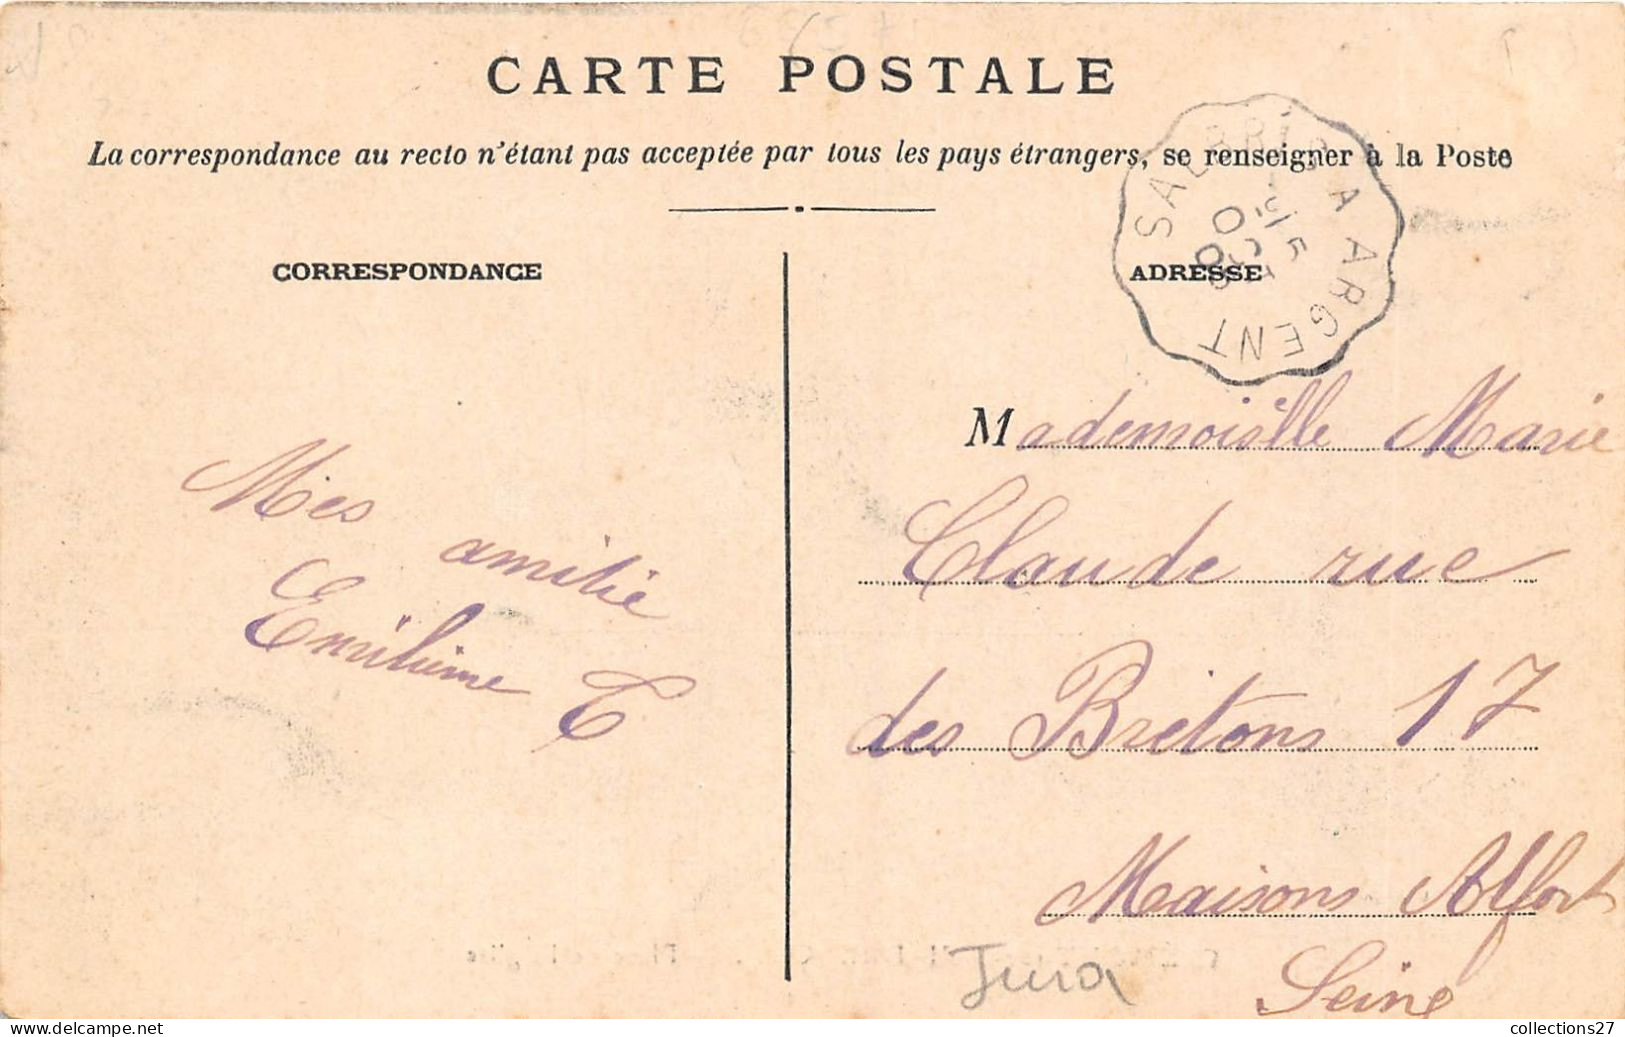 CARTE POSTALE
La correspondance au recto n'étant pas acceptée par tous les pays étrangers, se renseigner à la Poste
CORRESPONDANCE
ADRESSE
SALBRIS A ARGENT
OCT
Mes
amitié
Emilienne
Mademoiselle Marie
Claude rue
des Bretons 17
Maisons Alfort
Seine
Jura
collections27